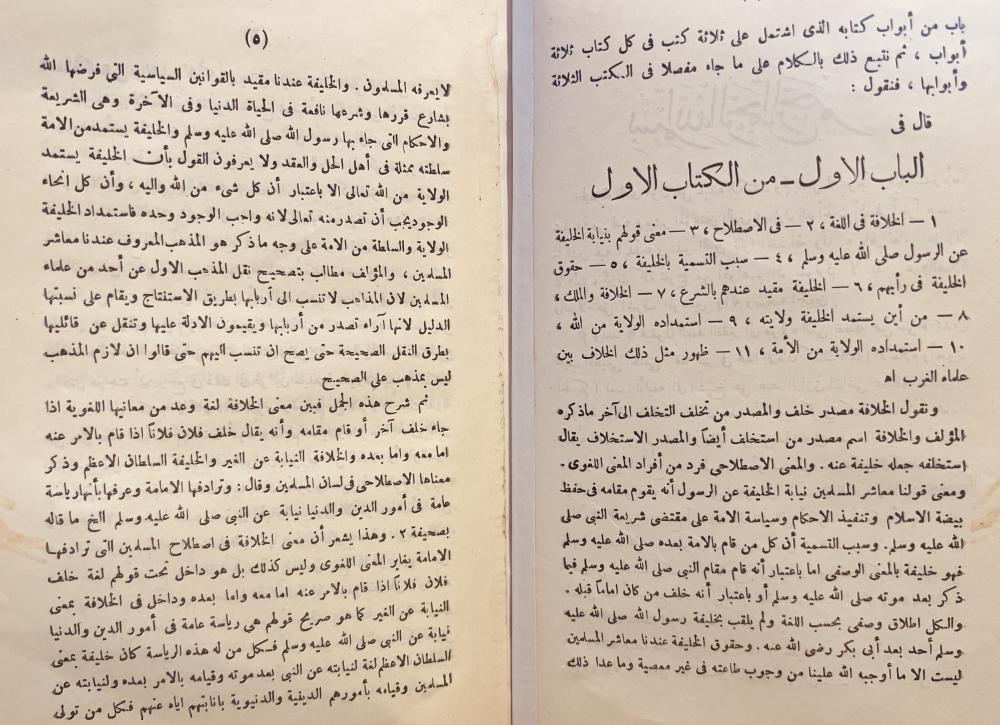 باب من أبواب كتابه الذى اشتمل على ثلاثة كتب فى كل كتاب ثلاثة
أبواب ، ثم نتبع ذلك بالكلام على ما جاء مفصلا فى الكتب الثلاثة
وأبوابها ، فنقول :
قال فى
الباب الاول ـ من الكتاب الاول
١ — الخلافة فى اللغة ، ٢ — فى الاصطلاح ، ٣ — معنى قولهم بنيابة الخليفة
عن الرسول صلى الله عليه وسلم ، ٤ — سبب التسمية بالخليفة ، ٥ — حقوق
الخليفة فى رأيهم ، ٦ — الخليفة مقيد عندهم بالشرع ، ٧ — الخلافة والملك ،
٨ — من أين يستمد الخليفة ولايته ، ٩ — استمداده الولاية من الله ،
١٠ — استمداده الولاية من الأمة ، ١١ — ظهور مثل ذلك الخلاف بين
علماء الغرب اه
ونقول الخلافة مصدر خلف والمصدر من تخلف التخلف الى آخر ماذكره
المؤلف والخلافة اسم مصدر من استخلف أيضاً والمصدر الاستخلاف يقال
استخلفه جعله خليفة عنه . والمعنى الاصطلاحى فرد من أفراد المعنى اللغوى .
ومعنى قولنا معاشر المسلمين نيابة الخليفة عن الرسول أنه يقوم مقامه فى حفظ
بيضة الاسلام وتنفيذ الاحكام وسياسة الامة على مقتضى شريعة النبى صلى
الله عليه وسلم . وسبب التسمية أن كل من قام بالامة بعده صلى الله عليه وسلم
فهو خليفة بالمعنى الوصفى اما باعتبار أنه قام مقام النبى صلى الله عليه وسلم فيما
ذكر بعد موته صلى الله عليه وسلم أو باعتبار أنه خلف من كان اماماً قبله .
والكل اطلاق وصفى بحسب اللغة ولم يلقب بخليفة رسول الله صلى الله عليه
وسلم أحد بعد أبى بكر رضى الله عنه . وحقوق الخليفة عندنا معاشر المسلمين
ليست الا ما أوجبه الله علينا من وجوب طاعته فى غير معصية وما عدا ذلك
(٥)
لا يعرفه المسلمون . والخليفة عندنا مقيد بالقوانين السياسية التى فرضها الله
بشارع قررها وشرعها نافعة فى الحياة الدنيا وفى الآخرة وهى الشريعة
والاحكام التى جاء بها رسول الله صلى الله عليه وسلم والخليفة يستمد من الامة
سلطته ممثلة فى أهل الحل والعقد ولا يعرفون القول بأن الخليفة يستمد
الولاية من الله تعالى الا باعتبار أن كل شىء من الله واليه ، وأن كل انحاء
الوجود يجب أن تصدر منه تعالى لانه واجب الوجود وحده فاستمداد الخليفة
الولاية والسلطة من الامة على وجه ما ذكر هو المذهب المعروف عندنا معاشر
المسلمين ، والمؤلف مطالب بتصحيح نقل المذهب الاول عن أحد من علماء
المسلمين لان المذاهب لا تنسب الى أربابها بطريق الاستنتاج ويقام على نسبتها
الدليل لانها آراء تصدر من أربابها ويقيمون الادلة عليها وتنقل عن قائليها
بطرق النقل الصحيحة حتى يصح ان تنسب اليهم حتى قالوا ان لازم المذهب
ليس بمذهب على الصحيح
ثم شرح هذه الجمل فبين معنى الخلافة لغة وعد من معانيها اللغوية اذا
جاء خلف آخر أو قام مقامه وأنه يقال خلف فلان فلاناً اذا قام بالامر عنه
اما معه واما بعده والخلافة النيابة عن الغير والخليفة السلطان الاعظم وذكر
معناها الاصطلاحى فى لسان المسلمين وقال : وترادفها الامامة وعرفها بأنها رياسة
عامة فى أمور الدين والدنيا نيابة عن النبى صلى الله عليه وسلم الخ ما قاله
بصحيفة ٢ . وهذا يشعر أن معنى الخلافة فى اصطلاح المسلمين التى ترادفها
الامامة يغاير المعنى اللغوى وليس كذلك بل هو داخل تحت قولهم لغة خلف
فلان فلاناً اذا قام بالامر عنه اما معه واما بعده وداخل فى الخلافة بمعنى
النيابة عن الغير كما هو صريح قولهم هى رياسة عامة فى أمور الدين والدنيا
نيابة عن النبى صلى الله عليه وسلم فكل من له هذه الرياسة كان خليفة بمعنى
السلطان الاعظم لغة لنيابته عن النبى بعد موته وقيامه بالامر بعده ولنيابته عن
المسلمين وقيامه بأمورهم الدينية والدنيوية بانابتهم اياه عنهم فكل من تولى